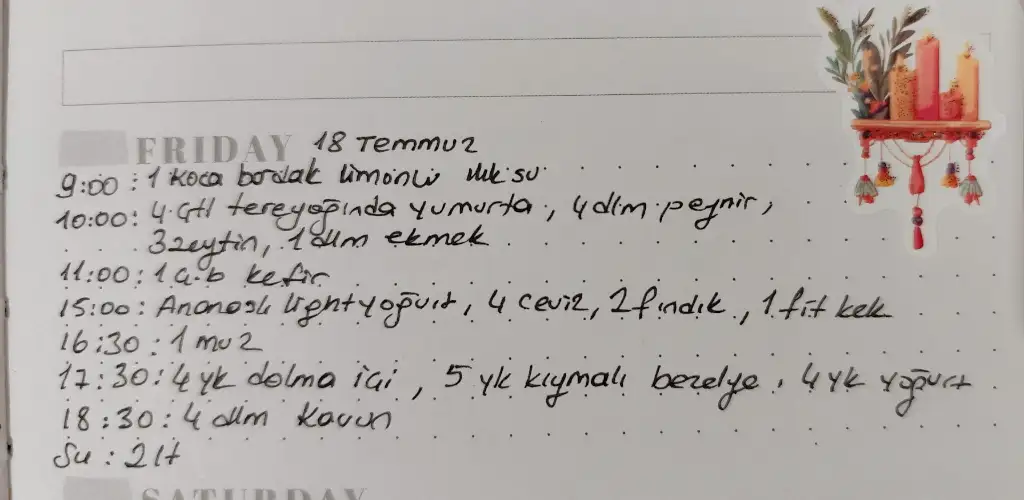 FRIDAY 18 Temmuz
9:00 : 1 koca bardak limonlu ılık su
10:00 : 4 çtl tereyağında yumurta, 4 dlm peynir,
3 zeytin, 1 dlm ekmek
11:00 : 1 ç.b kefir
15:00 : Ananaslı light yoğurt, 4 ceviz, 2 fındık, 1 fit kek
16:30 : 1 muz
17:30 : 4 yk dolma içi, 5 yk kıymalı bezelye, 4 yk yoğurt
18:30 : 4 dlm kavun
Su : 2 lt
SATURDAY